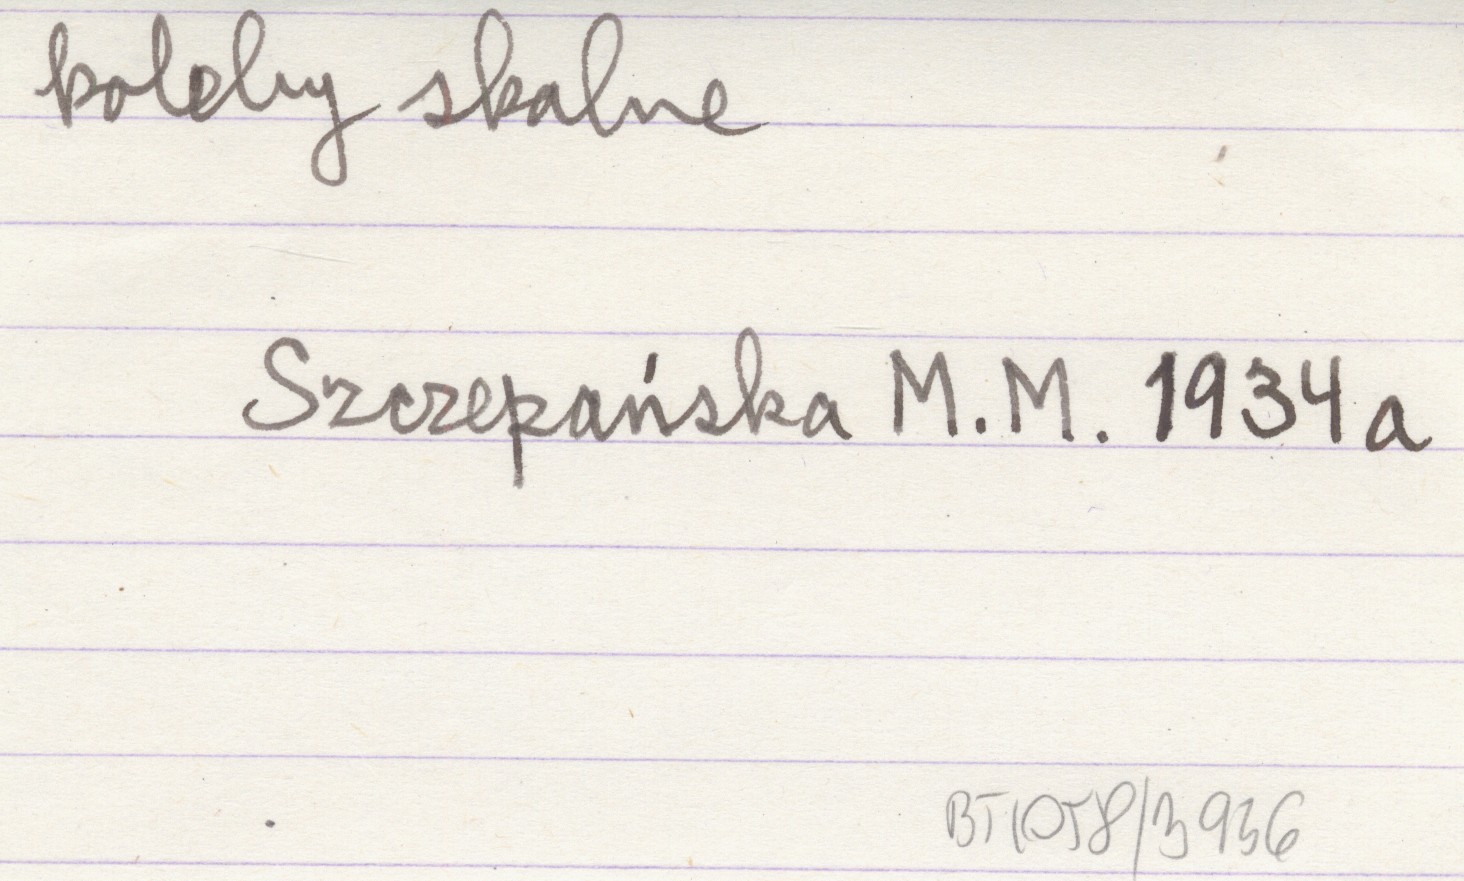 koleby skalne
Szczepańska M.M. 1934a
BT1058/3936